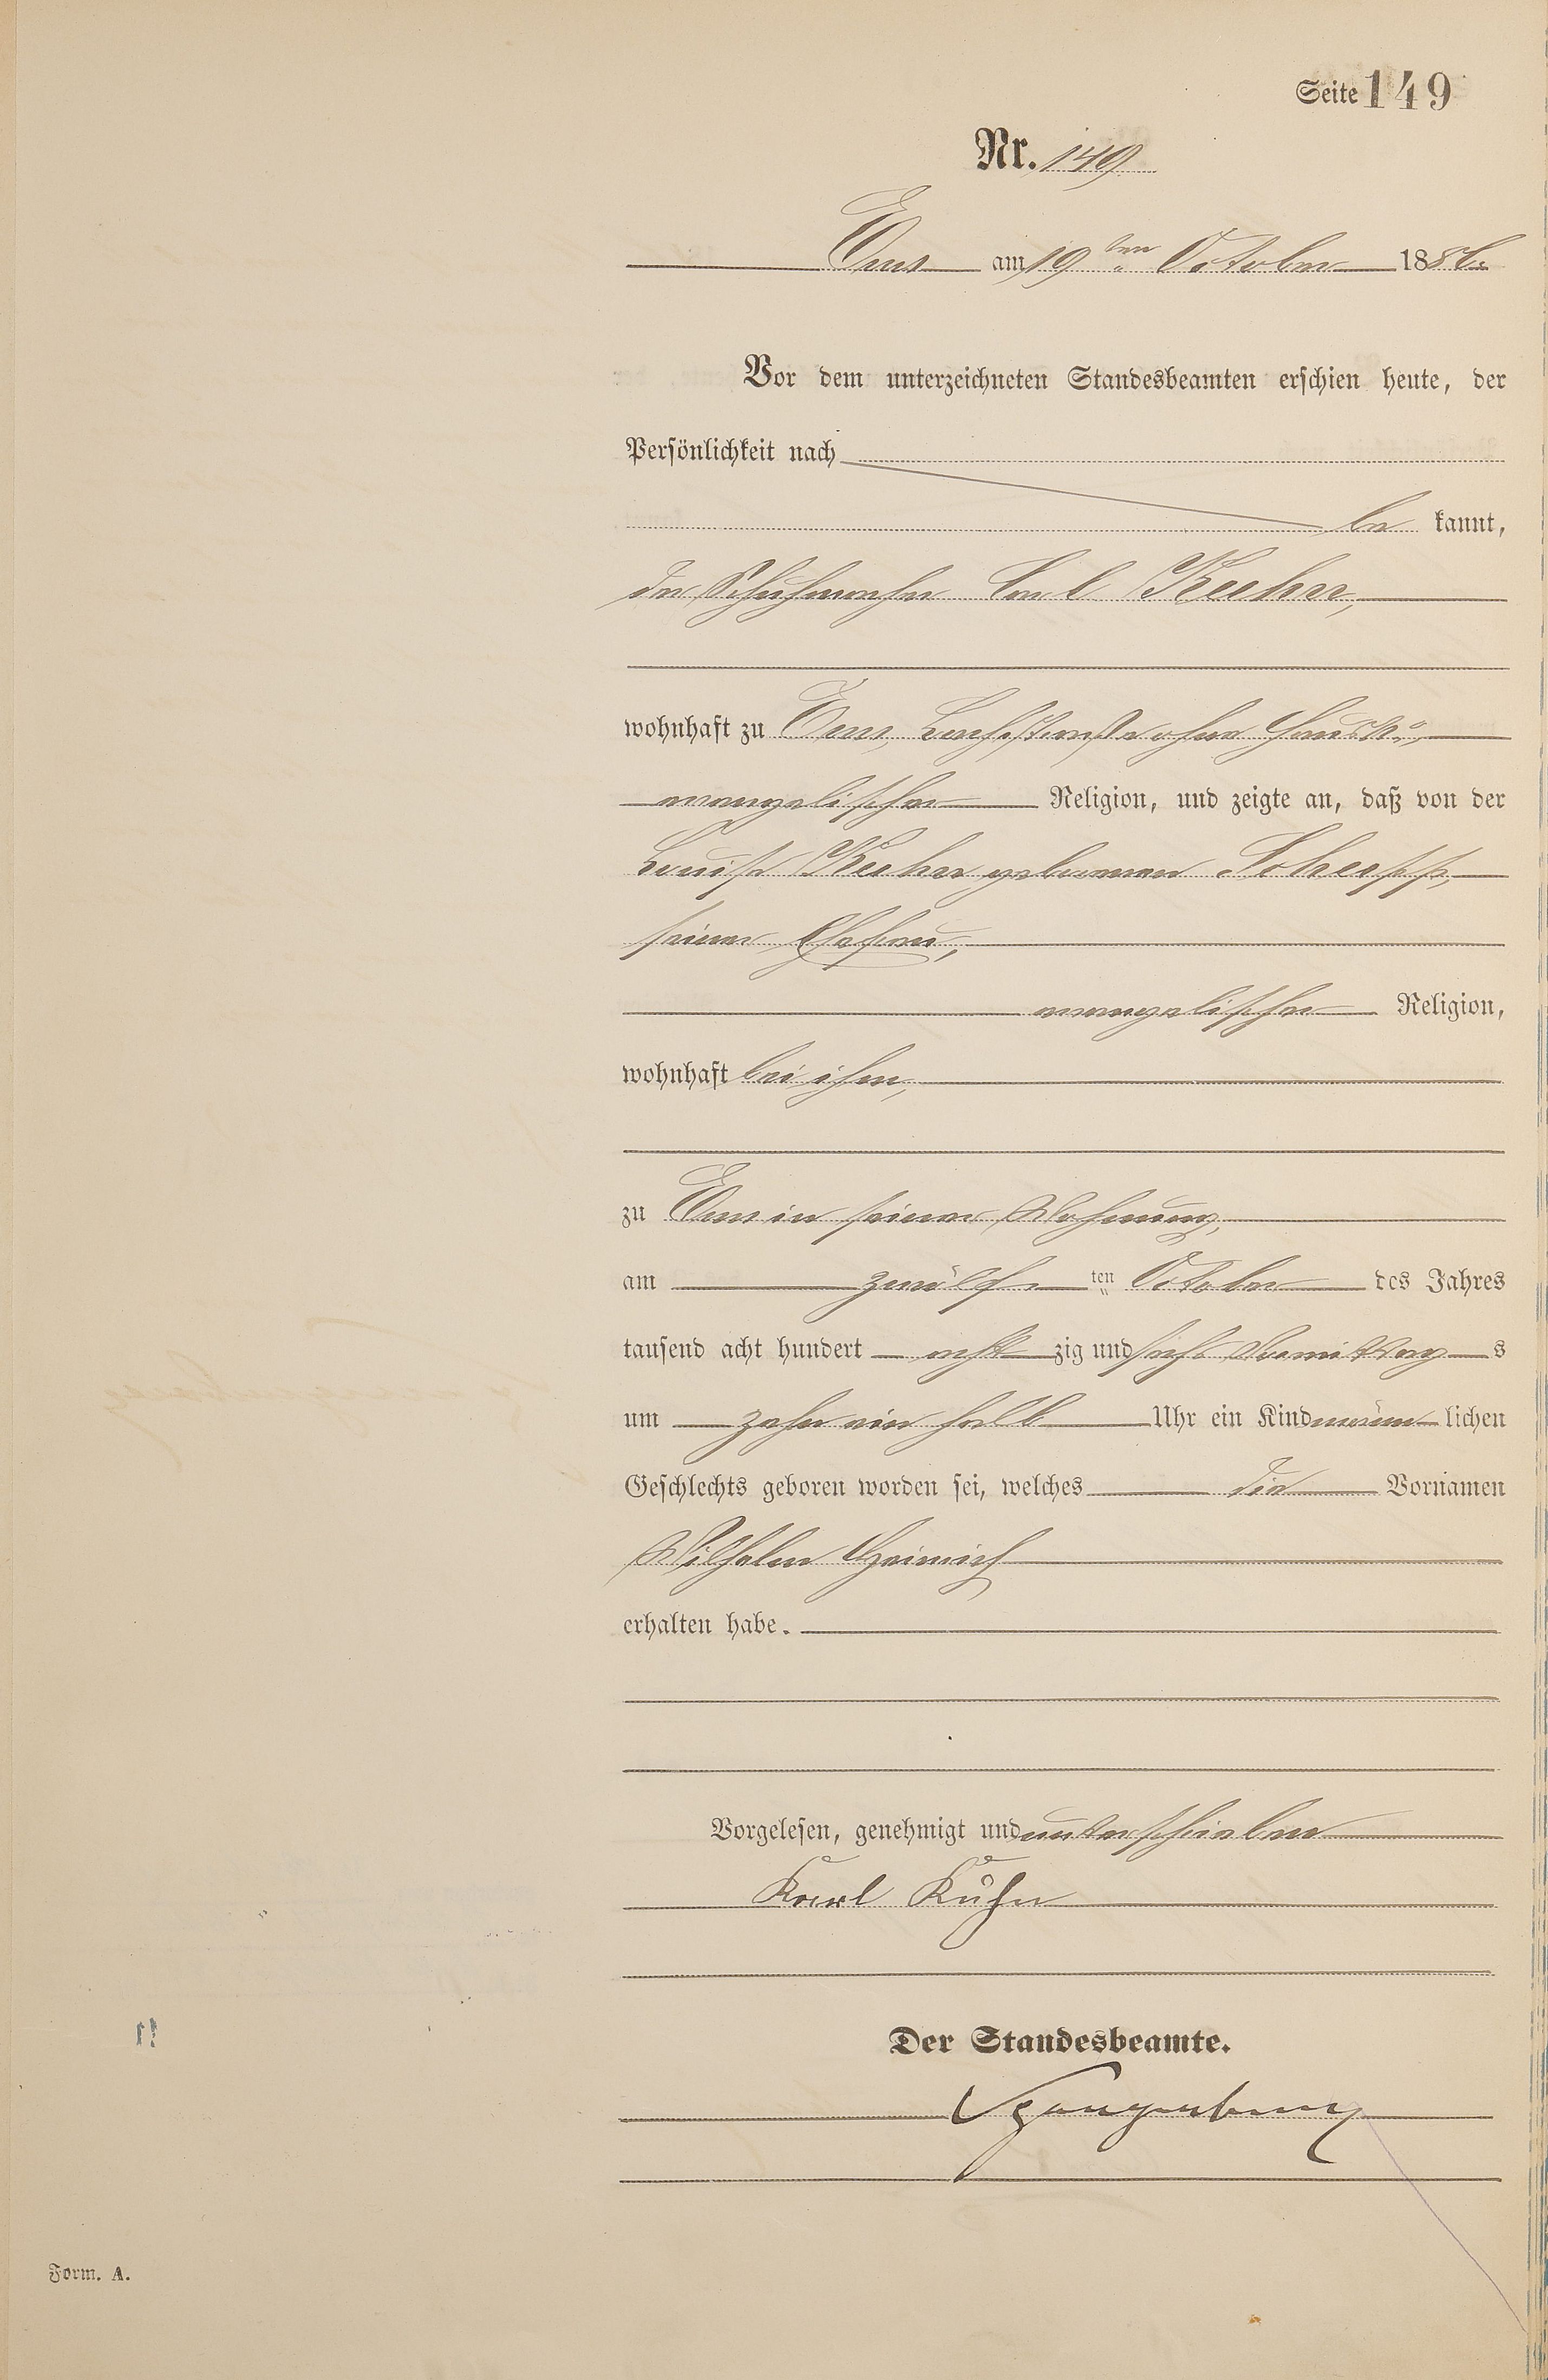 Seite 149
Nr. 149
Ems am 19ten October 1886.
Vor dem unterzeichneten Standesbeamten erschien heute, der
Persönlichkeit nach
be kannt,
der Schuhmacher Carl Kuhn,
wohnhaft zu Ems, straße ohne Haus No,
evangelischer Religion, und zeigte an, daß von der
Louise Kuhn geborenen
seiner Ehefrau,
evangelischer Religion,
wohnhaft bei ihm,
zu Ems in seiner Wohnung,
am zwölf ten October des Jahres
tausend acht hundert acht zig und sechs Vormittag s
um zehn ein halb Uhr ein Kind männ lichen
Geschlechts geboren worden sei, welches die Vornamen
Wilhelm Heinrich
erhalten habe.
Vorgelesen, genehmigt und unterschrieben
Karl Kuhn
Der Standesbeamte.
Spangenberg
Form. A.